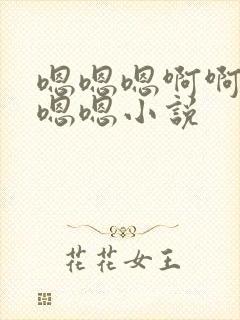 嗯嗯嗯啊啊
嗯嗯小说
花花女王